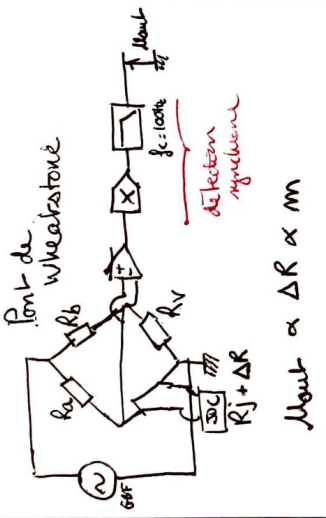 Pont de
Wheatstone
Ra
Rb
Rv
GBF
Rj + ΔR
+
-
X
fc=100Hz
Uout
détection
synchrone
Uout ∝ ΔR ∝ m